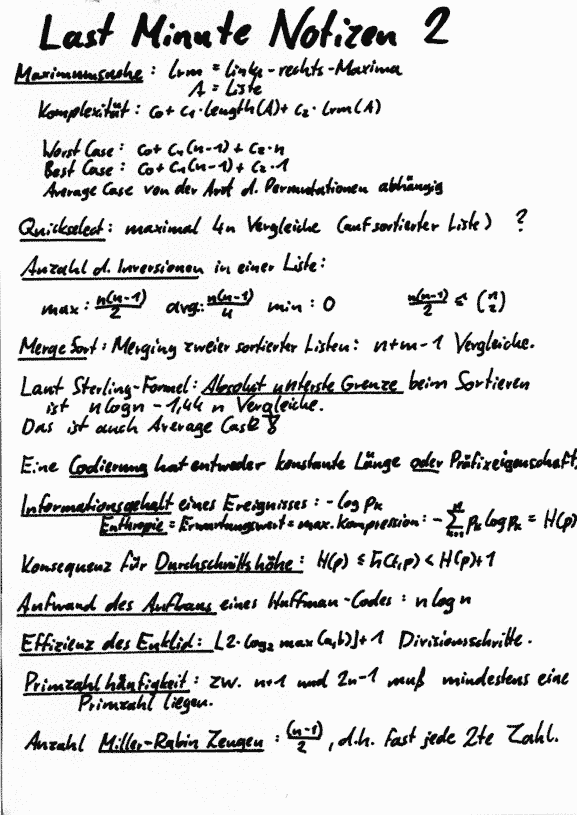 Last Minute Notizen 2
Maximumsuche: lrm = links-rechts-Maxima
A = Liste
Komplexität: c₀ + c₁·length(A) + c₂·lrm(A)
Worst Case: c₀ + c₁(n-1) + c₂·n
Best Case: c₀ + c₁(n-1) + c₂·1
Average Case von der Art d. Permutationen abhängig
Quickselect: maximal 4n Vergleiche (auf sortierter Liste) ?
Anzahl d. Inversionen in einer Liste:
max: n(n-1)/2 avg: n(n-1)/4 min: 0 n(n-1)/2 ≤ (n 2)
Merge Sort: Merging zweier sortierter Listen: n+m-1 Vergleiche.
Laut Sterling-Formel: Absolut unterste Grenze beim Sortieren
ist n log n - 1,44 n Vergleiche.
Das ist auch Average Case!
Eine Codierung hat entweder konstante Länge oder Präfixeigenschaft.
Informationsgehalt eines Ereignisses: -log pₖ
Enthropie = Erwartungswert = max. Kompression: -∑ pₖ log pₖ = H(p)
Konsequenz für Durchschnittshöhe: H(p) ≤ h̄(t,p) < H(p)+1
Aufwand des Aufbaus eines Huffman-Codes: n log n
Effizienz des Euklid: ⌊2·log₂ max(a,b)⌋+1 Divisionsschritte.
Primzahlhäufigkeit: zw. n+1 und 2n-1 muß mindestens eine
Primzahl liegen.
Anzahl Miller-Rabin Zeugen: (n-1)/2, d.h. fast jede 2te Zahl.